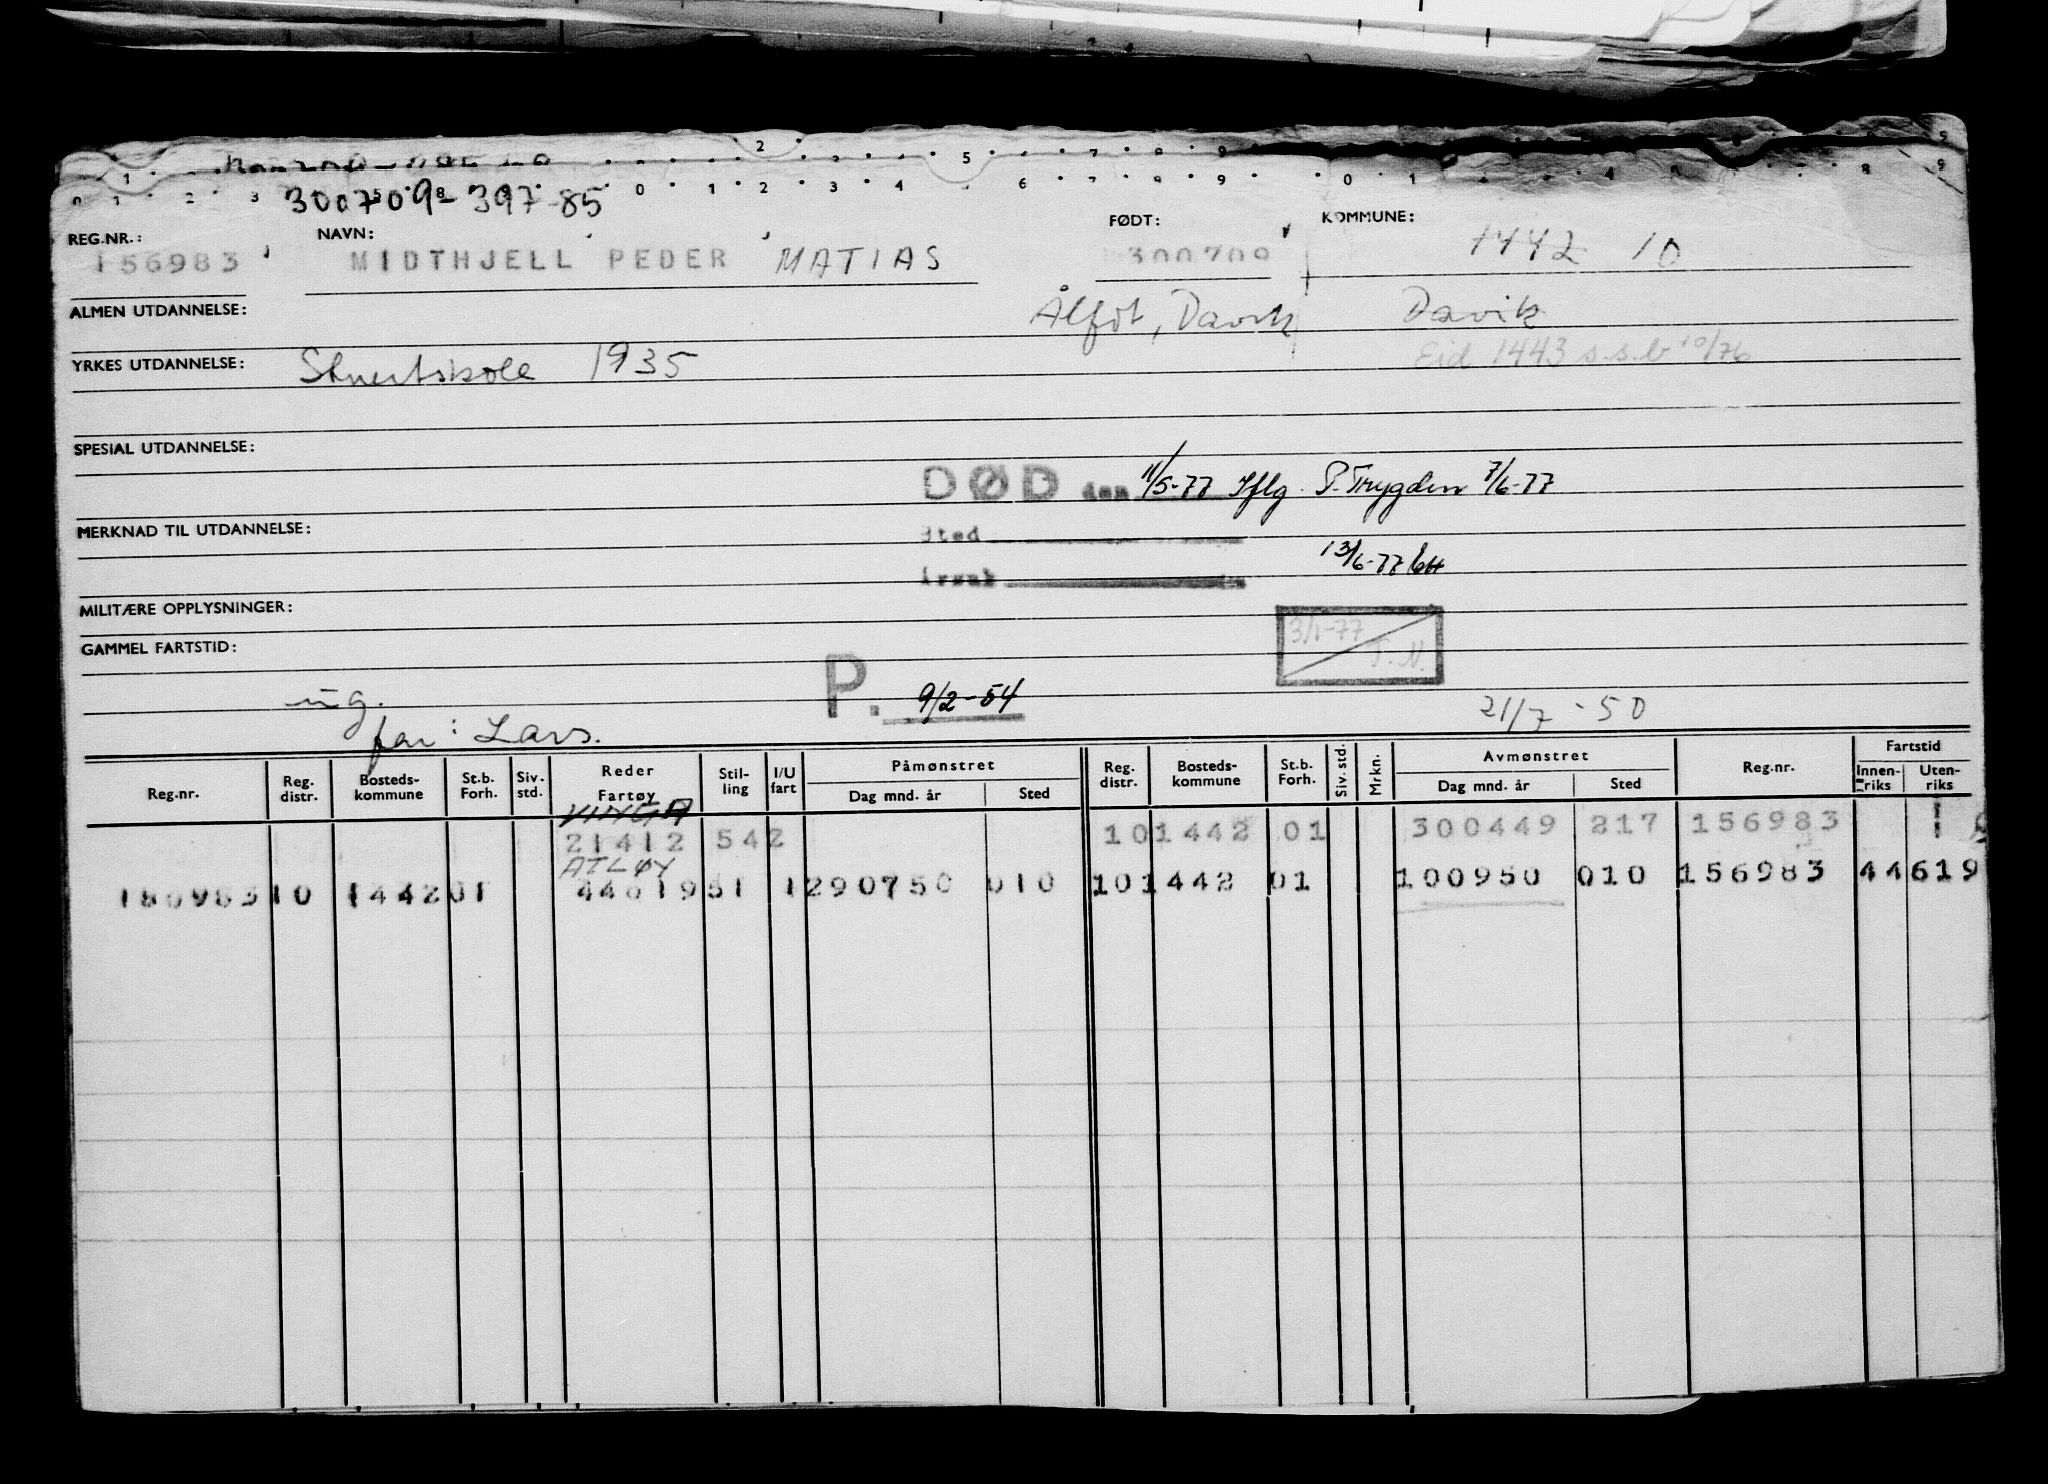 300709-397-85
REG.NR.: NAVN: FØDT: KOMMUNE:
156983 MIDTHJELL PEDER MATIAS 300709 1442 10
ALMEN UTDANNELSE: Ålfot, Davik Davik
YRKES UTDANNELSE: Stuertskole 1935 Eid 1443 s.s.b 10/76
SPESIAL UTDANNELSE:
DØD den 11/5-77 Iflg. P.Trygden 7/6-77
MERKNAD TIL UTDANNELSE: Sted
13/6-77
Årsak
MILITÆRE OPPLYSNINGER:
GAMMEL FARTSTID: 3/1-77 T.N.
ug. P. 9/2-54 21/7-50
far: Lars.
Reg.nr. Reg. distr. Bosteds-kommune St.b. Forh. Siv. std. Reder Fartøy Stil-ling I/U fart Påmønstret Dag mnd. år Sted Reg. distr. Bosteds-kommune St.b. Forh. Siv. std. Mrkn. Avmønstret Dag mnd. år Sted Reg.nr. Fartstid Innen-riks Uten-riks
VINGA
21412 542 101442 01 300449 217 156983 1
ATLØY
15698310 144201 4461951 1290750 010 101442 01 100950 010 156983 44619